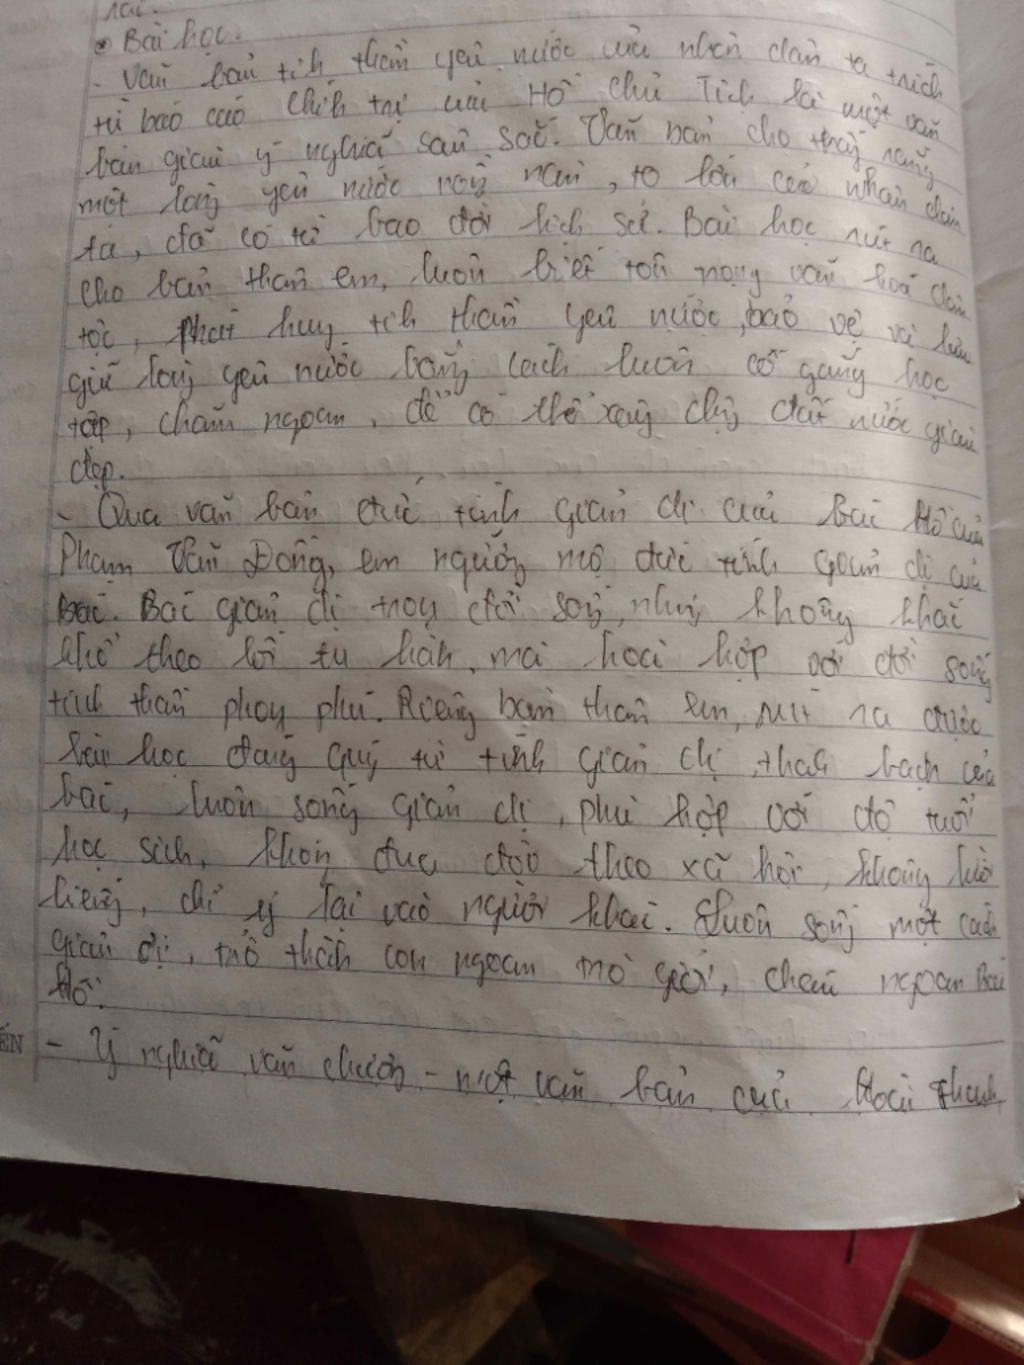 • Bài học.
- Văn bản tinh thần yêu nước của nhân dân ta trích
từ báo cáo chính trị của Hồ Chủ Tịch là một văn
bản giàu ý nghĩa sâu sắc. Văn bản cho thấy rằng
một lòng yêu nước nồng nàn, to lớn của nhân dân
ta, đã có từ bao đời lịch sử. Bài học rút ra
cho bản thân em, luôn biết tôn trọng văn hoá dân
tộc, phát huy tinh thần yêu nước, bảo vệ và lưu
giữ lòng yêu nước bằng cách luôn cố gắng học
tập, chăm ngoan, để có thể xây dựng đất nước giàu
đẹp.
- Qua văn bản đức tính giản dị của Bác Hồ của
Phạm Văn Đồng, em ngưỡng mộ đức tính giản dị của
Bác. Bác giản dị trong đời sống, nhưng không khắc
khổ theo lối tu hành, mà hoà hợp với đời sống
tinh thần phong phú. Riêng bản thân em, rút ra được
bài học đáng quý từ tính giản dị, thanh bạch của
bác, luôn sống giản dị, phù hợp với độ tuổi
học sinh, không đua đòi theo xã hội, không lười
biếng, chỉ ỷ lại vào người khác. Luôn sống một cách
giản dị, trở thành con ngoan trò giỏi, cháu ngoan Bác
Hồ.
- Ý nghĩa văn chương - một văn bản của Hoài Thanh,